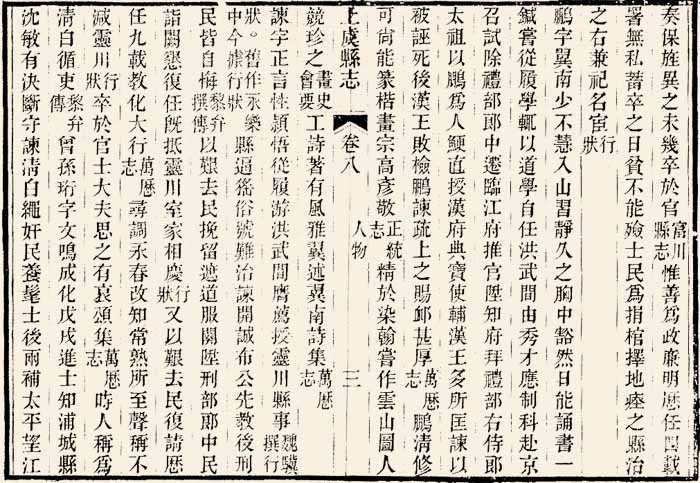 奏保旌異之未幾卒於官富川縣志惟善爲政廉明歴任四載
署無私蓄卒之日貧不能殮士民爲捐棺擇地瘞之縣治
之右兼祀名宦行狀
鵬字翼南少不慧入山習靜久之胸中豁然日能誦書一
緘嘗從履學輒以道學自任洪武間由秀才應制科赴京
召試除禮部郞中遷臨江府推官陞知府拜禮部右侍郞
太祖以鵬爲人鯁直授漢府典寶使輔漢王多所匡諫以
被誣死後漢王敗檢鵬諫疏上之賜䘏甚厚萬歴志鵬清修
可尙能篆楷畫宗高彥敬正統志精於染翰嘗作雲山圖人
上虞縣志 卷八 人物 三
競珍之畫史會要工詩著有風雅翼述翼南詩集萬歴志
諫字正言性頴悟從履游洪武間膺薦授靈川縣事魏驥撰行
狀。舊作永樂中今據行狀縣逼猺俗號難治諫開誠布公先教後刑
民皆自悔黎弁撰傳以艱去民挽留遮道服闋陞刑部郞中民
詣闕懇復任旣抵靈川室家相慶行狀又以艱去民復請歴
任九載教化大行萬歴志尋調永春改知常熟所至聲稱不
減靈川行狀卒於官士大夫思之有哀頌集萬歴志時人稱爲
清白循吏黎弁傳曾孫珩字文鳴成化戊戌進士知浦城縣
沈敏有決斷守諫清白繩奸民養髦士後兩補太平望江